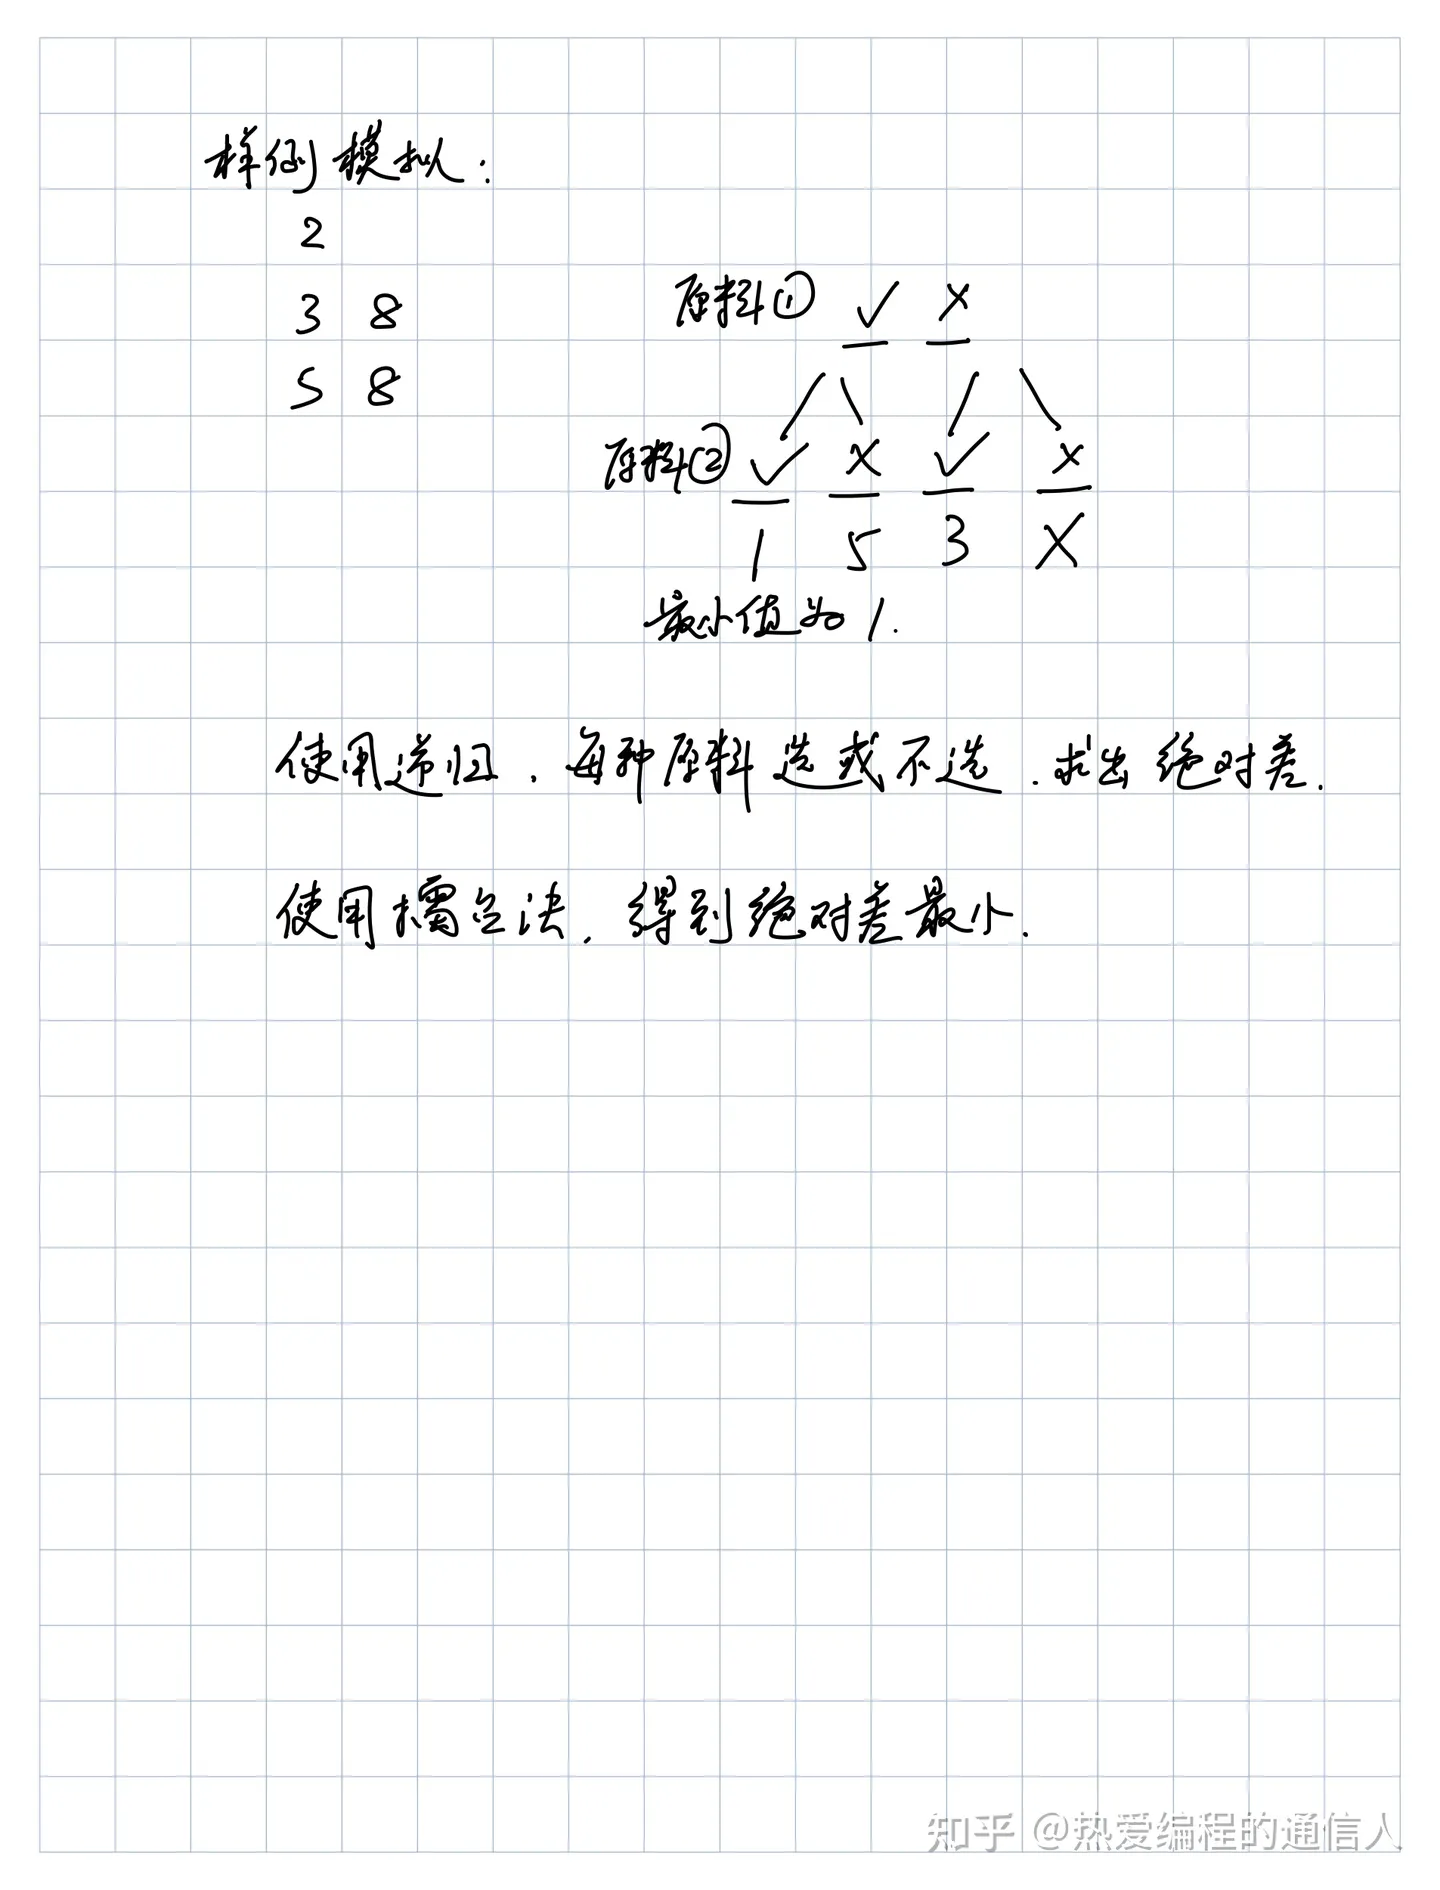 样例模拟:
2
3 8
5 8
原料① ✓ ×
原料② ✓ × ✓ ×
1 5 3 ×
最小值为1.
使用递归,每种原料选或不选.求出绝对差.
使用擂台法,得到绝对差最小.
知乎 @热爱编程的通信人